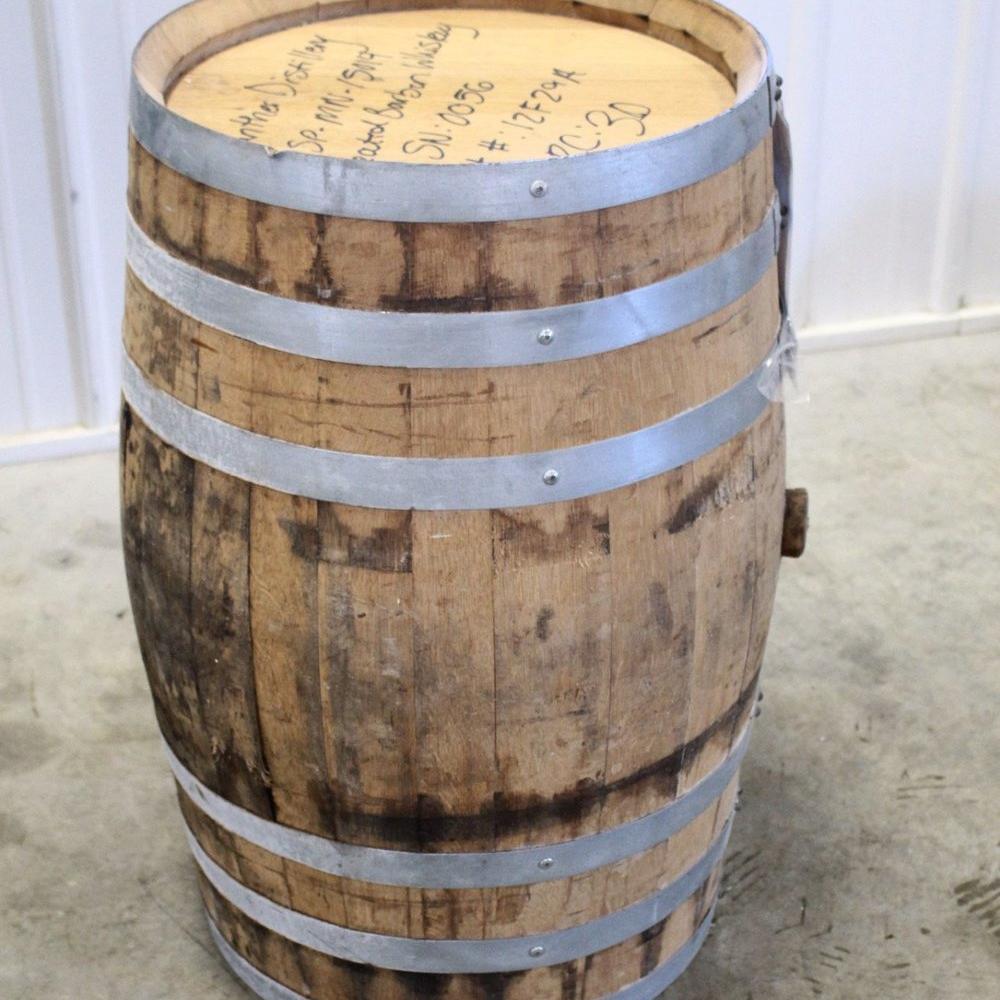 Distillery
SP-MN-15017
Bourbon Whiskey
SN: 0056
#: 12F29A
PC: 30